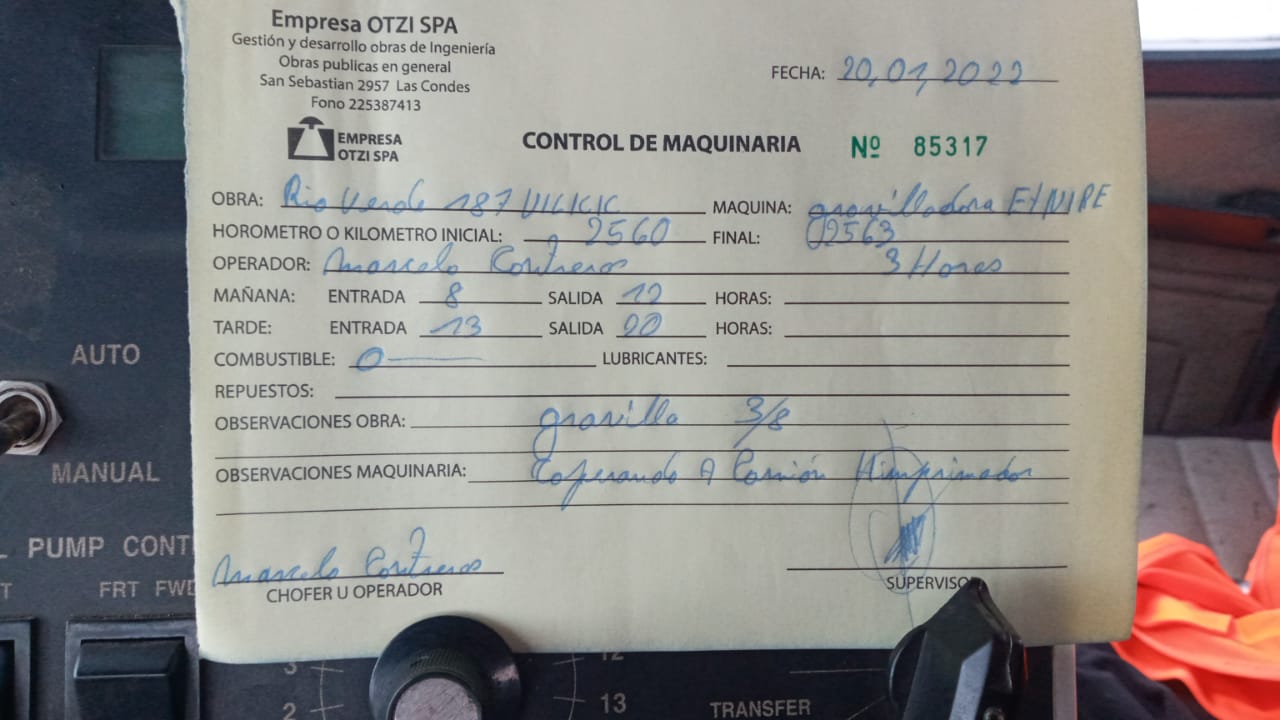 Empresa OTZI SPA
Gestión y desarrollo obras de Ingeniería
Obras publicas en general
San Sebastian 2957 Las Condes
Fono 225387413
FECHA: 20,01,2022
EMPRESA
OTZI SPA
CONTROL DE MAQUINARIA Nº 85317
OBRA: Rio Verde 187 MAQUINA: gravilladora
HOROMETRO O KILOMETRO INICIAL: 2560 FINAL: 02563
OPERADOR: Marcelo Contreros 3 Horas
MAÑANA: ENTRADA 8 SALIDA 12 HORAS:
TARDE: ENTRADA 13 SALIDA 20 HORAS:
COMBUSTIBLE: 0 LUBRICANTES:
REPUESTOS:
OBSERVACIONES OBRA: gravilla 3/8
OBSERVACIONES MAQUINARIA: Esperando A Camión Himprimador
Marcelo Contreros
CHOFER U OPERADOR
SUPERVISO
AUTO
MANUAL
PUMP CONT
FRT FWD
3
2
12
13
TRANSFER